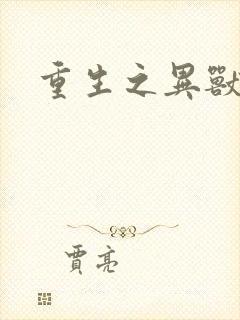 重生之異獸
賈亮